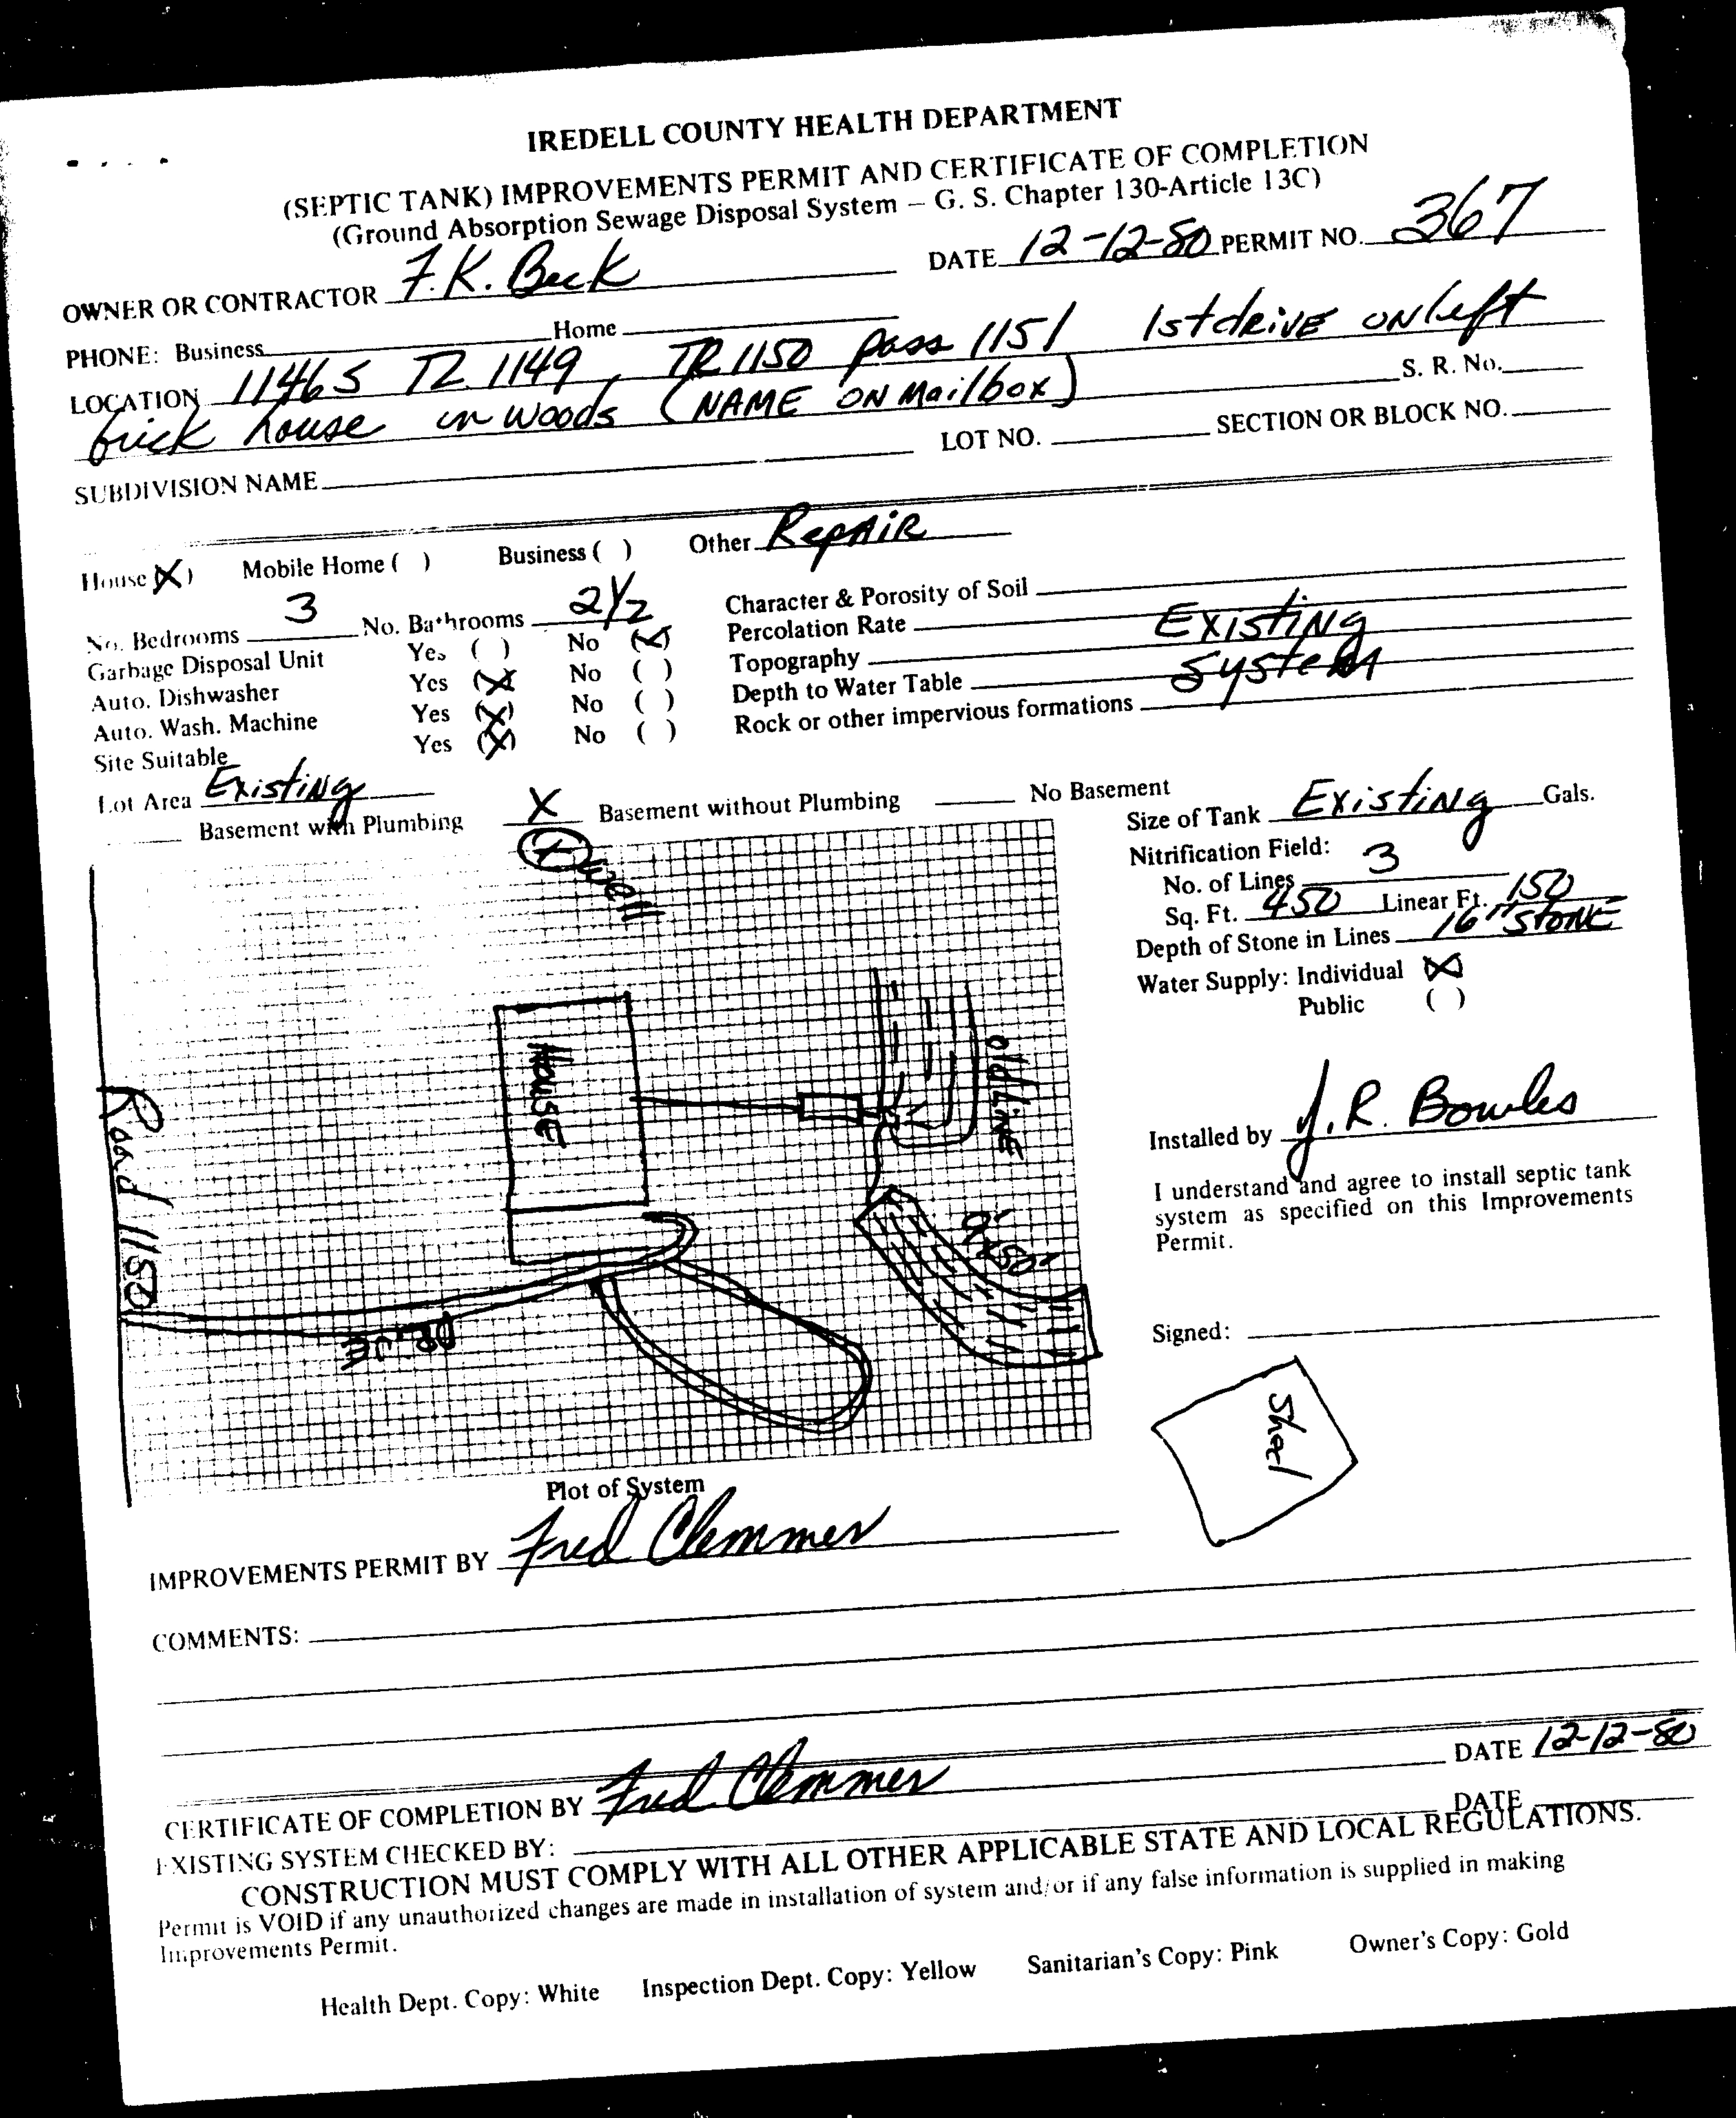 IREDELL COUNTY HEALTH DEPARTMENT
(SEPTIC TANK) IMPROVEMENTS PERMIT AND CERTIFICATE OF COMPLETION
(Ground Absorption Sewage Disposal System – G. S. Chapter 130-Article 13C)
OWNER OR CONTRACTOR F.K. Beck DATE 12-12-80 PERMIT NO. 367
PHONE: Business Home
LOCATION 1146S TL 1149, TR 1150 pass 1151 1st drive on left
brick house in woods (NAME ON Mailbox) S. R. No.
SUBDIVISION NAME LOT NO. SECTION OR BLOCK NO.
House (X) Mobile Home ( ) Business ( ) Other Repair
No. Bedrooms 3 No. Bathrooms 2 1/2
Garbage Disposal Unit Yes ( ) No (X)
Auto. Dishwasher Yes (X) No ( )
Auto. Wash. Machine Yes (X) No ( )
Site Suitable Yes (X) No ( )
Character & Porosity of Soil
Percolation Rate
Topography Existing
Depth to Water Table System
Rock or other impervious formations
Lot Area Existing
Basement with Plumbing X Basement without Plumbing No Basement
Size of Tank Existing Gals.
Nitrification Field:
No. of Lines 3
Sq. Ft. 450 Linear Ft. 150
Depth of Stone in Lines 16" STONE
Water Supply: Individual (X)
Public ( )
well
House
old LINE
Road 1150
DRIVE
Installed by J.R. Bowles
I understand and agree to install septic tank
system as specified on this Improvements
Permit.
Signed:
Shed
Plot of System
IMPROVEMENTS PERMIT BY Fred Clemmer
COMMENTS:
CERTIFICATE OF COMPLETION BY Fred Clemmer DATE 12-12-80
EXISTING SYSTEM CHECKED BY: DATE
CONSTRUCTION MUST COMPLY WITH ALL OTHER APPLICABLE STATE AND LOCAL REGULATIONS.
Permit is VOID if any unauthorized changes are made in installation of system and/or if any false information is supplied in making
Improvements Permit.
Health Dept. Copy: White Inspection Dept. Copy: Yellow Sanitarian's Copy: Pink Owner's Copy: Gold